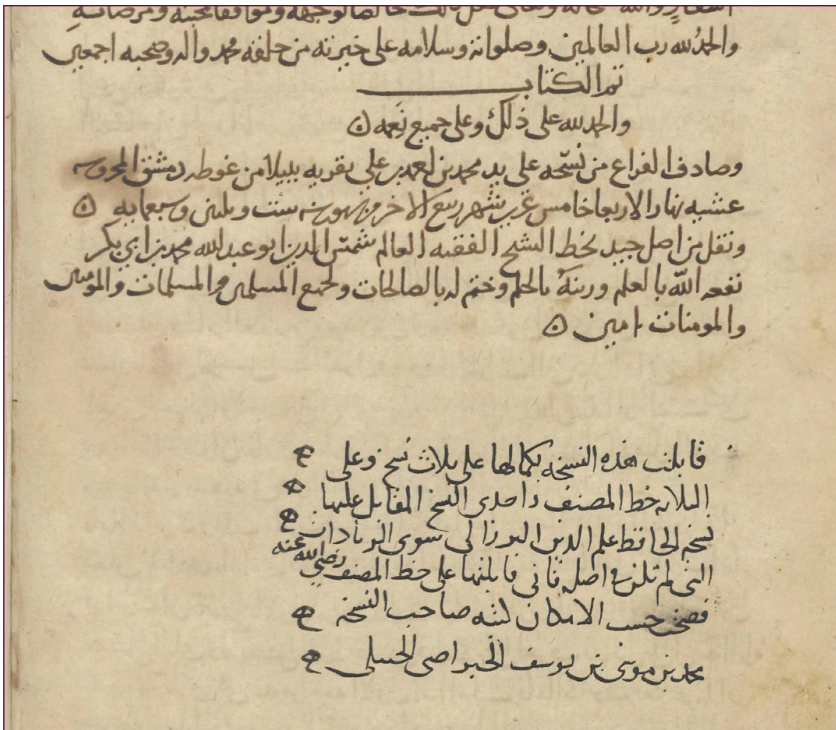 والله خالصا لوجهه وموافقا لمحبته ومرضاته
والحمد لله رب العالمين وصلواته وسلامه على خيرته من خلقه محمد واله وصحبه اجمعين
تم الكتاب
والحمد لله على ذلك وعلى جميع نعمه
وصادف الفراغ من نسخه على يد محمد بن احمد بن علي بقرية ببيلا من غوطه دمشق المحروسه
عشيه نهار الاربعا خامس شهر ربيع الاخر من شهور سنه ست وثلثين وسبعمايه
ونقل من اصل جيد بخط الشيخ الفقيه العالم شمس الدين ابو عبد الله محمد بن ابي بكر
نفعه الله بالعلم وزينه بالحلم وختم له بالصالحات ولجميع المسلمين والمسلمات والمومنين
والمومنات امين
قابلت هذه النسخه بكمالها على ثلاث نسخ وعلى
الثلاثه خط المصنف واحدى النسخ المقابل عليها
نسخه الحافظ علم الدين البرزالي سوى الزيادات
التي لم تكن في اصله فاني قابلتها على خط المصنف رضي الله عنه
فصحت حسب الامكان كتبه صاحب النسخه
محمد بن موسى بن يوسف الحنبلي